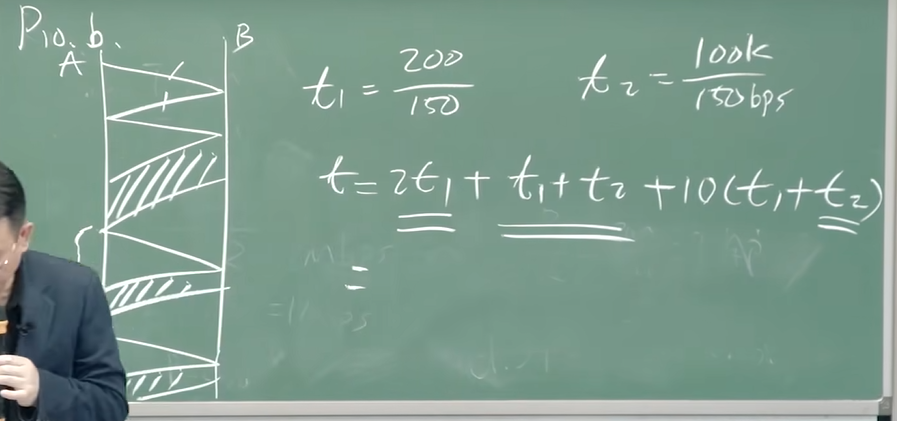 P10. b.
A
B
t1 = 200/150
t2 = 100k/150bps
t = 2t1 + t1 + t2 + 10(t1 + t2)
=